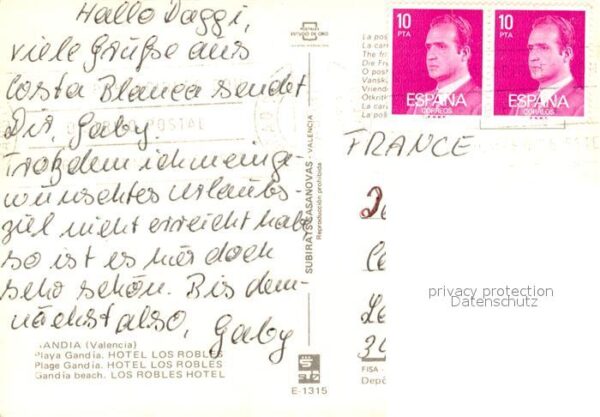 Hallo Daggi,
viele Grüße aus
Costa Blanca sendet
Dir, Gaby.
Trotzdem ich mein ge-
wünschtes Urlaubs-
ziel nicht erreicht habe
so ist es hier doch
sehr schön. Bis dem-
nächst also, Gaby
GANDIA (Valencia)
Playa Gandía. HOTEL LOS ROBLES
Plage Gandía. HOTEL LOS ROBLES
Gandia beach. LOS ROBLES HOTEL
POSTAL
SUBIRATS CASANOVAS - VALENCIA
Reproducción prohibida
E-1315
La pos
La car
The fr
Die Fr
O post
Vansk
Vried
Otkrit
La ca
La po
10
PTA
ESPAÑA
CORREOS
10
PTA
ESPAÑA
CORREOS
FRANCE
privacy protection
Datenschutz
34
FISA -
Depó